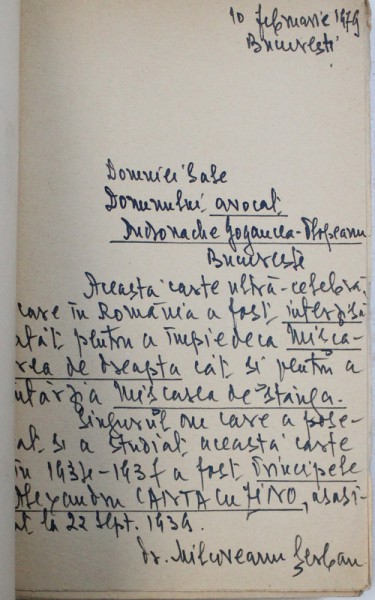 10 februarie 1979
București
Domniei Sale
Domnului avocat
București
Aceasta carte ultra-celebră
care în România a fost interzisă
atât pentru a împiedeca Mișca-
rea de dreapta cât și pentru a
întârzia Mișcarea de stânga.
Singurul om care a pose-
at și a studiat aceasta carte
în a fost Principele
Alexandru CANTACUZINO, asasi-
at la 22 sept. 1939.
dr. Șerban